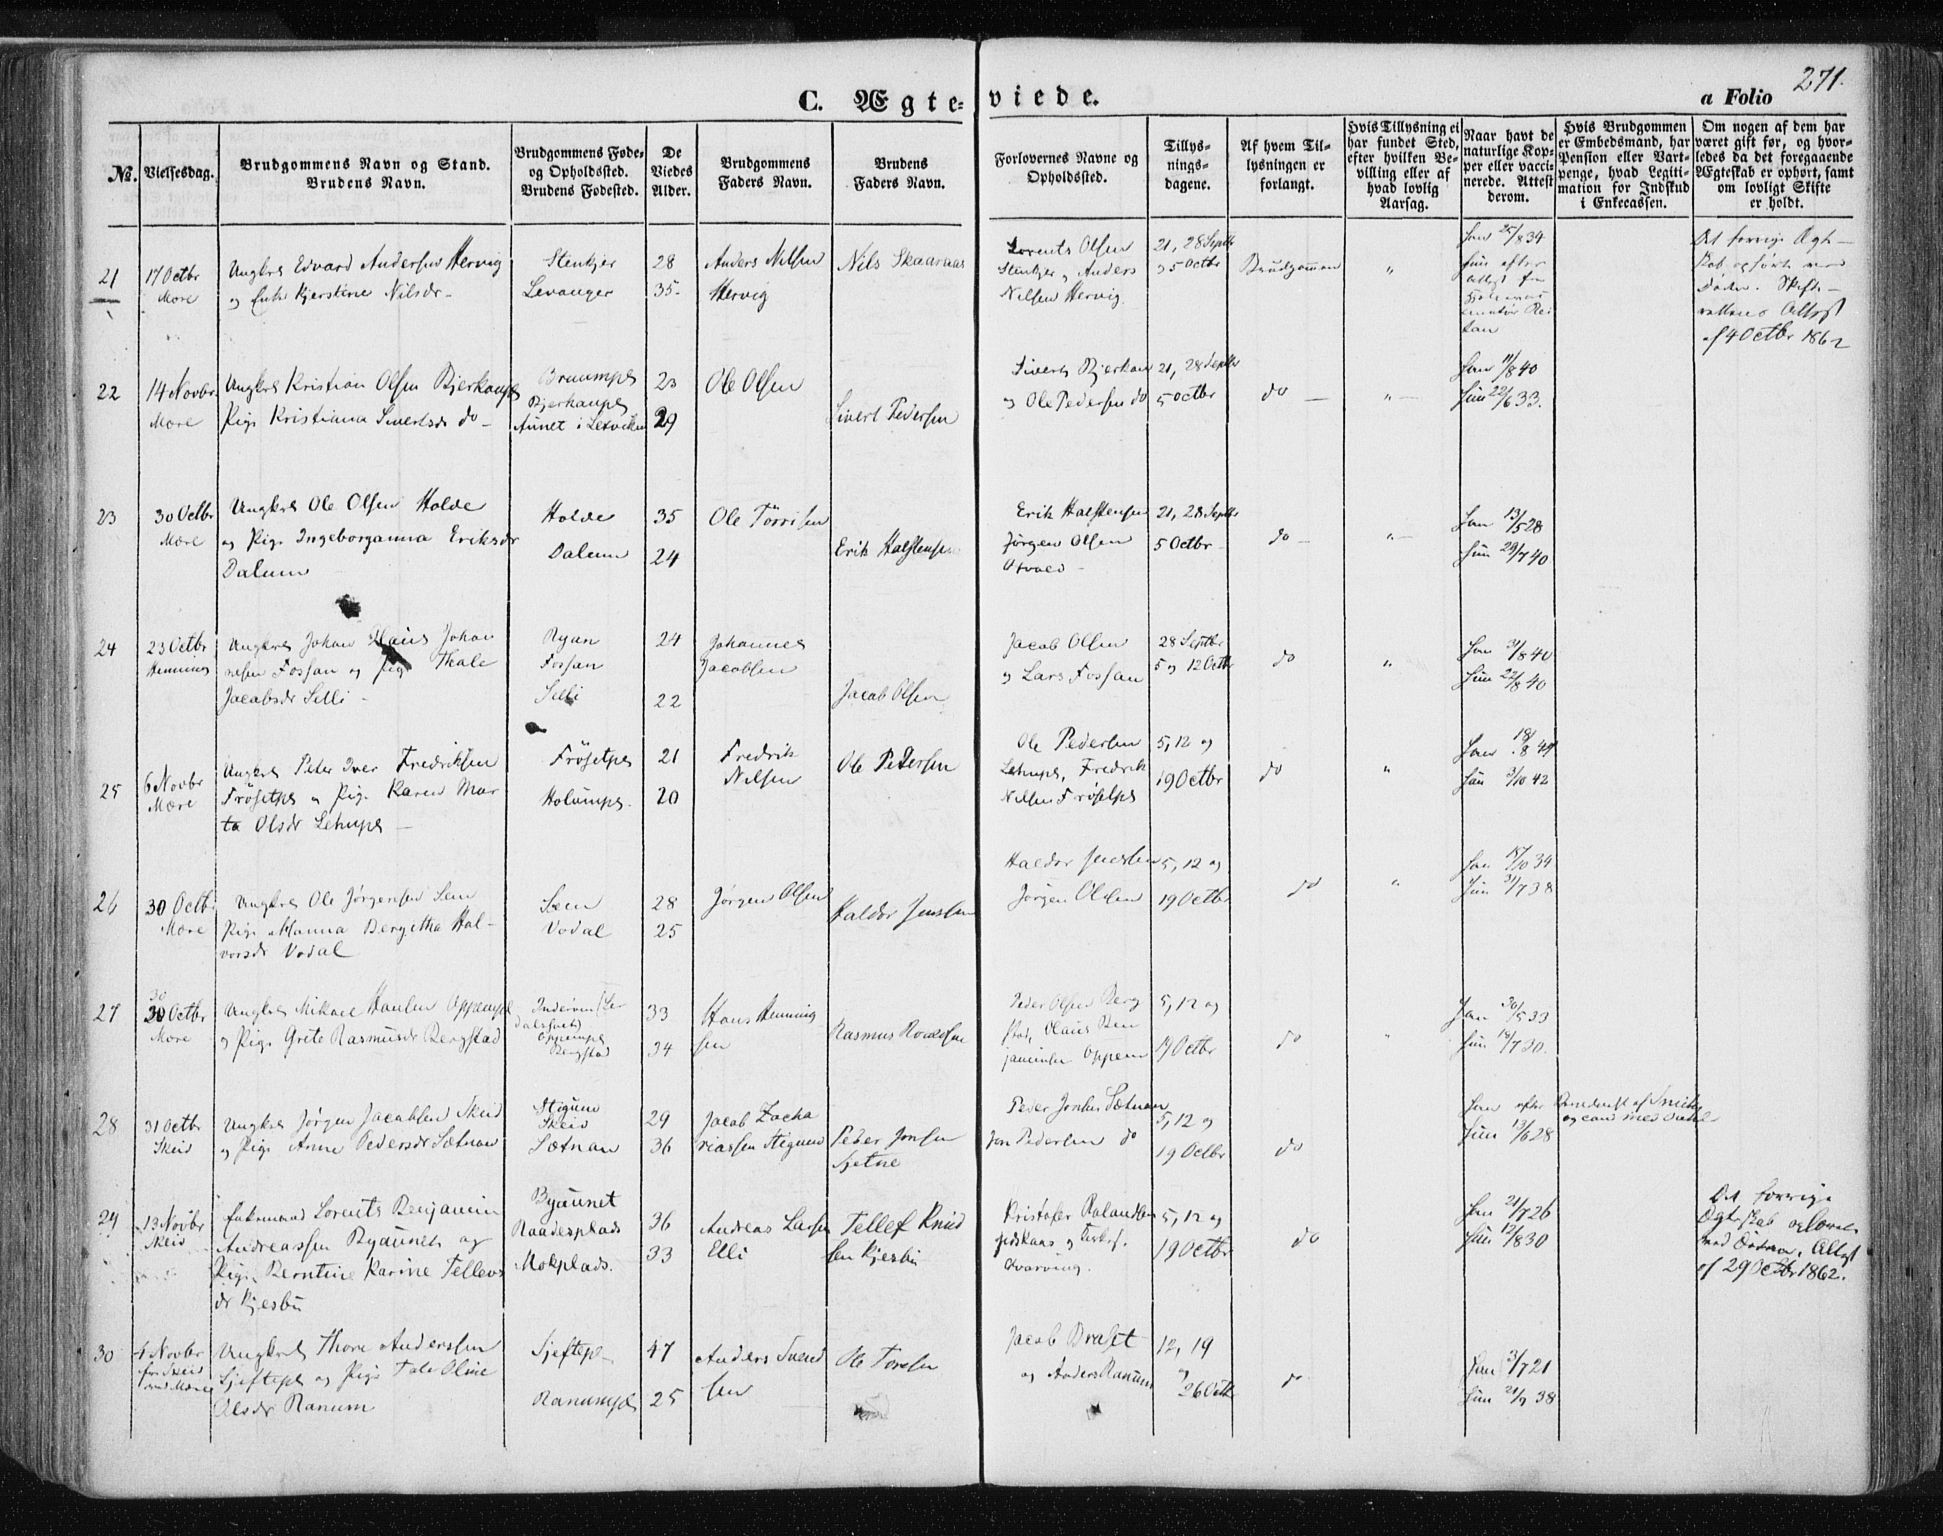 271.
C. Ægte-viede.
a Folio
No.
Vielsesdag.
Brudgommens Navn og Stand.
Brudens Navn.
Brudgommens Føde-
og Opholdssted.
Brudens Fødested.
De
Viedes
Alder.
Brudgommens
Faders Navn.
Brudens
Faders Navn.
Forlovernes Navne og
Opholdssted.
Tillys-
nings-
dagene.
Af hvem Til-
lysningen er
forlangt.
Hvis Tillysning ei
har fundet Sted,
efter hvilken Be-
villing eller af
hvad lovlig
Aarsag.
Naar havt de
naturlige Kop-
per eller vacci-
nerede. Attest
derom.
Hvis Brudgommen
er Embedsmand, har
Pension eller Vart-
penge, hvad Legiti-
mation for Indskud
i Enkecassen.
Om nogen af dem har
været gift før, og hvor-
ledes da det foregaaende
Ægteskab er ophørt, samt
om lovligt Skifte
er holdt.
21
17 Octbr
Mære
Ungkrl Edvard Andersen Hervig
og Enke Kjerstine Nilsdr
Stenkjer
Levanger
28
35
Anders Nilsen
Hervig
Nils Skaaraas
Lorents Olsen
Stenkjer og Anders
Nilsen Hervig
21, 28 Septbr
5 Octbr
Brudgommen
"
Han 25/8 34
Hun efter
Attest fra
Det forrige Ægte-
skab ophørt ved
Døden. Skifte-
rettens Attest
af 4 Octbr 1862
22
14 Novbr
Mære
Ungkrl Kristian Olsen Bjerkanpl
Pige Kristiana Sivertsdr do
Bruumpl
Bjerkanpl
Aunet i Letvik
23
29
Ole Olsen
Sivert Pedersen
Sivert Bjerkan
og Ole Pedersen do
21, 28 Septbr
5 Octbr
do
"
Han 11/8 40
Hun 22/6 33.
23
30 Octbr
Mære
Ungkrl Ole Olsen Holde
og Pige Ingeborganna Eriksdr
Dalum
Holde
Dalum
35
24
Ole Tørrisen
Erik Halstensen
Erik Halstensen
Jørgen Olsen
21, 28 Septbr
5 Octbr
do
"
Han 13/5 28
Hun 29/7 40
24
23 Octbr
Henning
Ungkrl Johan Claus Johan
nesen Fossan og Pige Thale
Jacobsdr Selli
Ryan
Fossan
Selli
24
22
Johannes
Jacobsen
Jacob Olsen
Jacob Olsen
og Lars Fossan
28 Septbr
5 og 12 Octbr
do
"
Han 31/8 40
Hun 22/8 40
25
6 Novbr
Mære
Ungkrl Peter Iver Fredriksen
Frösetpl og Pige Karen Mar
ta Olsdr Lehnpl
Frösetpl
Holumpl
21
20
Fredrik
Nilsen
Ole Petersen
Ole Pedersen
Lehnpl, Fredrik
Nilsen Frösetpl
5, 12 og
19 Octbr
do
"
Han 18/8 41
Hun 3/10 42
26
30 Octbr
Mære
Ungkrl Ole Jørgensen Sem
Pige Hanna Bergitha Hal-
vorsdr Vodal
Sem
Vodal
28
25
Jørgen Olsen
Haldor Jensen
Haldor Jensen
Jørgen Olsen
5, 12 og
19 Octbr
do
"
Han 15/10 34
Hun 31/7 38
27
30
30 Octbr
Mære
Ungkrl Mikael Hansen Oppempl
og Pige Grete Rasmusdr Bergstad
Inderøen
Oppempl
Bergstad
33
34
Hans Henning
sen
Rasmus Roaldsen
Peder Olsen Berg
stad, Olaus Ben
jaminsen Oppem
5, 12 og
19 Octbr
do
"
Han 30/5 33
Hun 18/7 30.
28
31 Octbr
Skeid
Ungkrl Jørgen Jacobsen Skeid
og Pige Anne Pedersdr Sætnan
Stigum
Skeid
Sætnan
29
36
Jacob Zacha
riassen Stigum
Peter Jonsen
Sjetne
Peder Jonsen Sætnan
Jon Pedersen do
5, 12 og
19 Octbr
do
Han efter
Hun 13/6 28
29
13 Novbr
Skeid
Enkemand Lorents Benjamin
Andreassen Byaunet og
Pige Berntine Karine Tellefs
dr Kjesbu
Byaunet
Raadesplads
Mokplads.
36
33
Andreas Larsen
Elli
Tellef Knud
sen Kjesbu
Kristofer Rolandsen
5, 12 og
19 Octbr
do
Han 21/7 26
Hun 12/8 30
Det forrige
Ægteskab opløst
ved Døden, Attest
af 29 Octbr 1862.
30
4 Novbr
for Skeid
ved Mære
Ungkrl Thore Anderssen
Sjeftepl og Pige Tale Oline
Olsdr Ranum
Sjeftepl
Ranumspl
47
25
Anders Svend
sen
Ole Toresen
Jacob Braset
og Anders Ranum
12, 19
og
26 Octb
do
Han 3/7 21
Hun 21/9 38